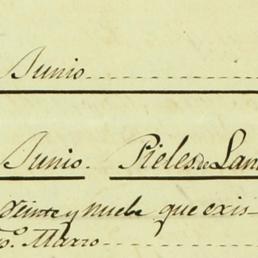 Junio
Junio. Pieles de Lan
Veinte y nuebe que exis-
Marzo